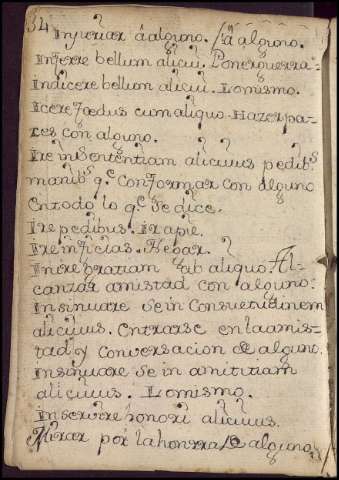 34 Injuriar â alguno. / a alguno.
Inferre bellum alicui. Poner guerra
Indicere bellum alicui. Lo mismo.
Icere foedus cum aliquo. Hazer pa-
zes con alguno.
Ire in sententiam alicuius pedibs
manibs qe conformar con alguno
en todo lo qe se dice.
Ire pedibus. Ir a pie.
Ire inficias. Negar.
Inire gratiam ab aliquo. Al-
canzar amistad con alguno.
Insinuare se in consuetudinem
alicuius. Entrarse en la amis-
tad, y conversacion de alguno.
Insinuare se in amititiam
alicuius. Lo mismo.
Inservire honori alicuius.
Mirar por la honrra de alguno.